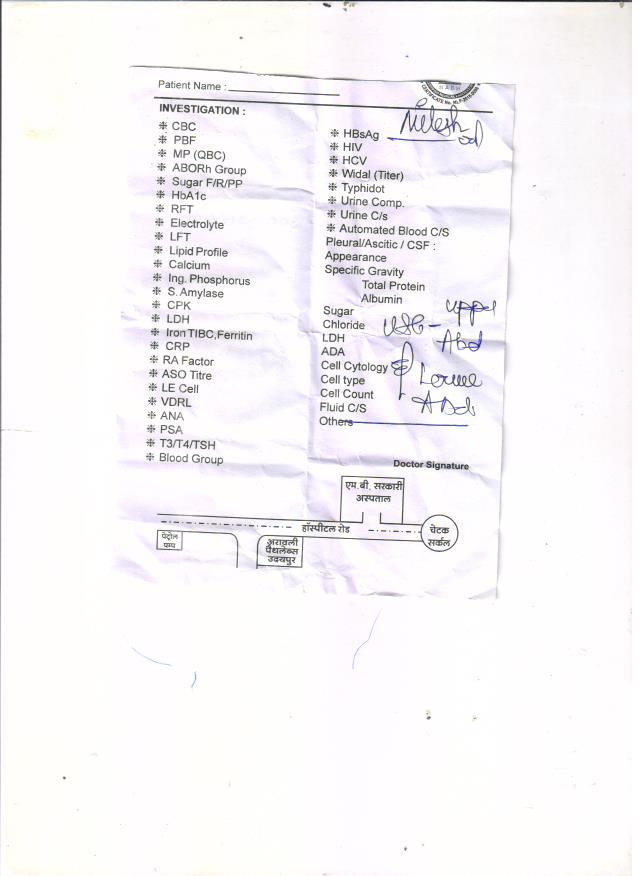 NABH
Patient Name :
INVESTIGATION :
❉ CBC
❉ PBF
❉ MP (QBC)
❉ ABORh Group
❉ Sugar F/R/PP
❉ HbA1c
❉ RFT
❉ Electrolyte
❉ LFT
❉ Lipid Profile
❉ Calcium
❉ Ing. Phosphorus
❉ S. Amylase
❉ CPK
❉ LDH
❉ Iron TIBC,Ferritin
❉ CRP
❉ RA Factor
❉ ASO Titre
❉ LE Cell
❉ VDRL
❉ ANA
❉ PSA
❉ T3/T4/TSH
❉ Blood Group
Nilesh
❉ HBsAg
❉ HIV
❉ HCV
❉ Widal (Titer)
❉ Typhidot
❉ Urine Comp.
❉ Urine C/s
❉ Automated Blood C/S
Pleural/Ascitic / CSF :
Appearance
Specific Gravity
Total Protein
Albumin
Sugar
Chloride
LDH
ADA
Cell Cytology
Cell type
Cell Count
Fluid C/S
Others
USG - Upper
Abd
Lower
Abd
Doctor Signature
एम.बी. सरकारी
अस्पताल
हॉस्पीटल रोड
चेटक
सर्कल
पेट्रोल
पम्प
अरावली
पैथलेब्स
उदयपुर